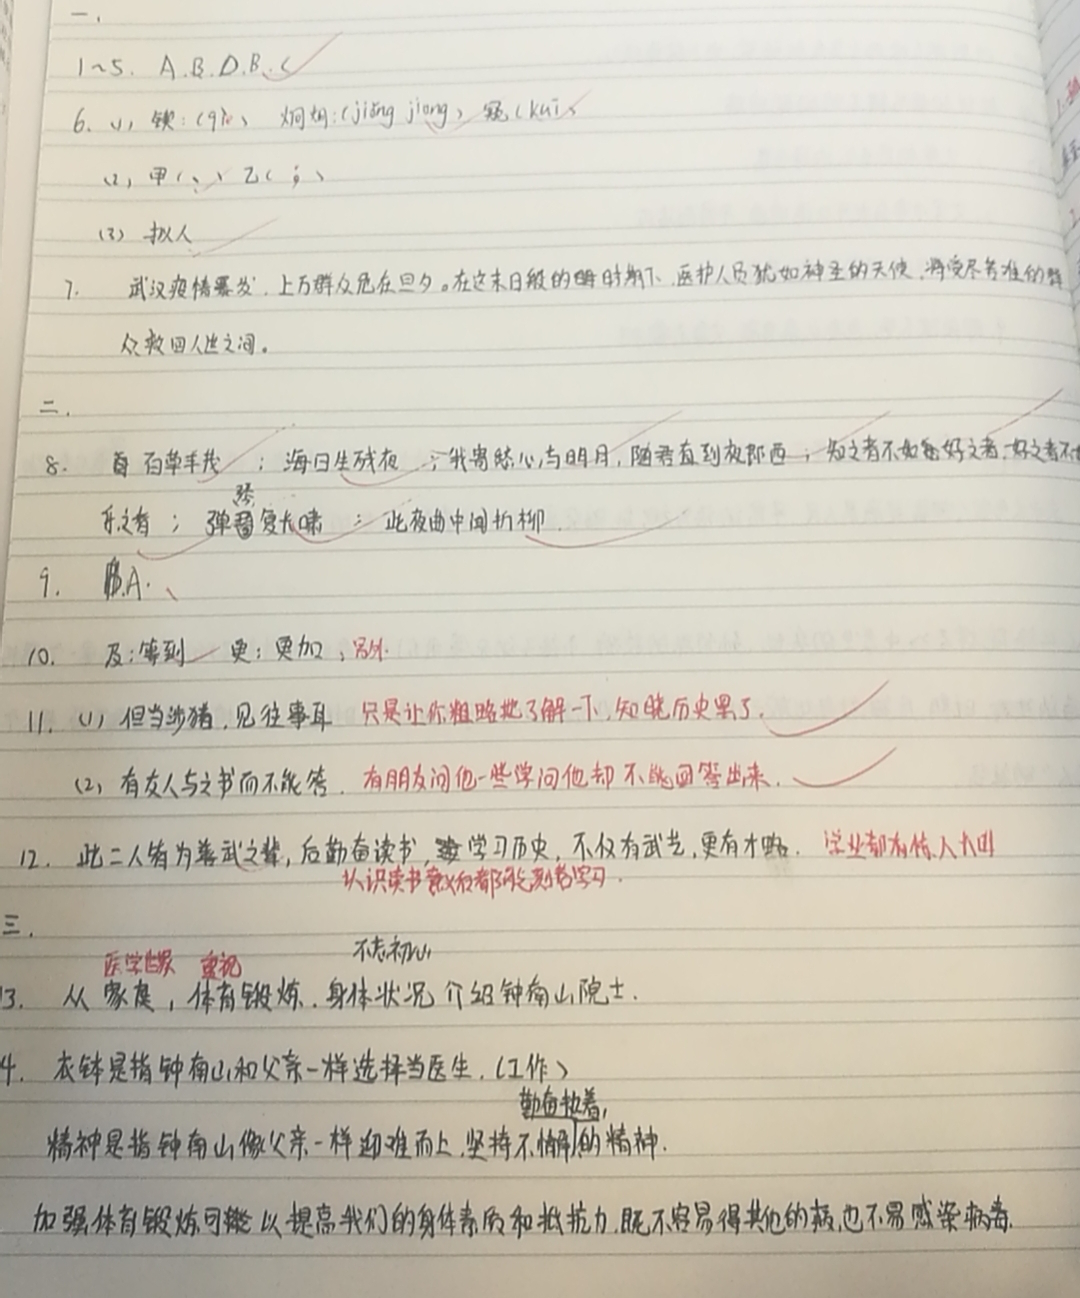 一、
1~5. A.B.D.B.C
6. (1) 锲:(qiè) 炯炯:(jiǒng jiong) 窥(kuī)
(2) 甲(、) 乙(；)
(3) 拟人
7. 武汉疫情暴发，上万群众危在旦夕。在这末日般的时期下，医护人员犹如神圣的天使，将受尽苦难的群
众救回人世之间。
二、
8. 百草丰茂；海日生残夜；我寄愁心与明月，随君直到夜郎西；知之者不如好之者，好之者不
乐之者；弹琴复长啸；此夜曲中闻折柳．
9. A.
10. 及:等到 更:更加；另外
11. (1) 但当涉猎，见往事耳 只是让你粗略地了解一下，知晓历史罢了．
(2) 有友人与之书而不能答． 有朋友问他一些学问他却不能回答出来．
12. 此二人皆为善武之辈，后勤奋读书，学习历史，不仅有武艺，更有才略． 学业都有
认识读书意义后都能刻苦学习．
三、
医学世家 重视 不忘初心
13. 从家庭，体育锻炼，身体状况介绍钟南山院士．
4. 衣钵是指钟南山和父亲一样选择当医生．(工作)
勤奋执着，
精神是指钟南山像父亲一样迎难而上，坚持不懈的精神．
加强体育锻炼可以提高我们的身体素质和抵抗力，既不容易得其他的病，也不易感染病毒．